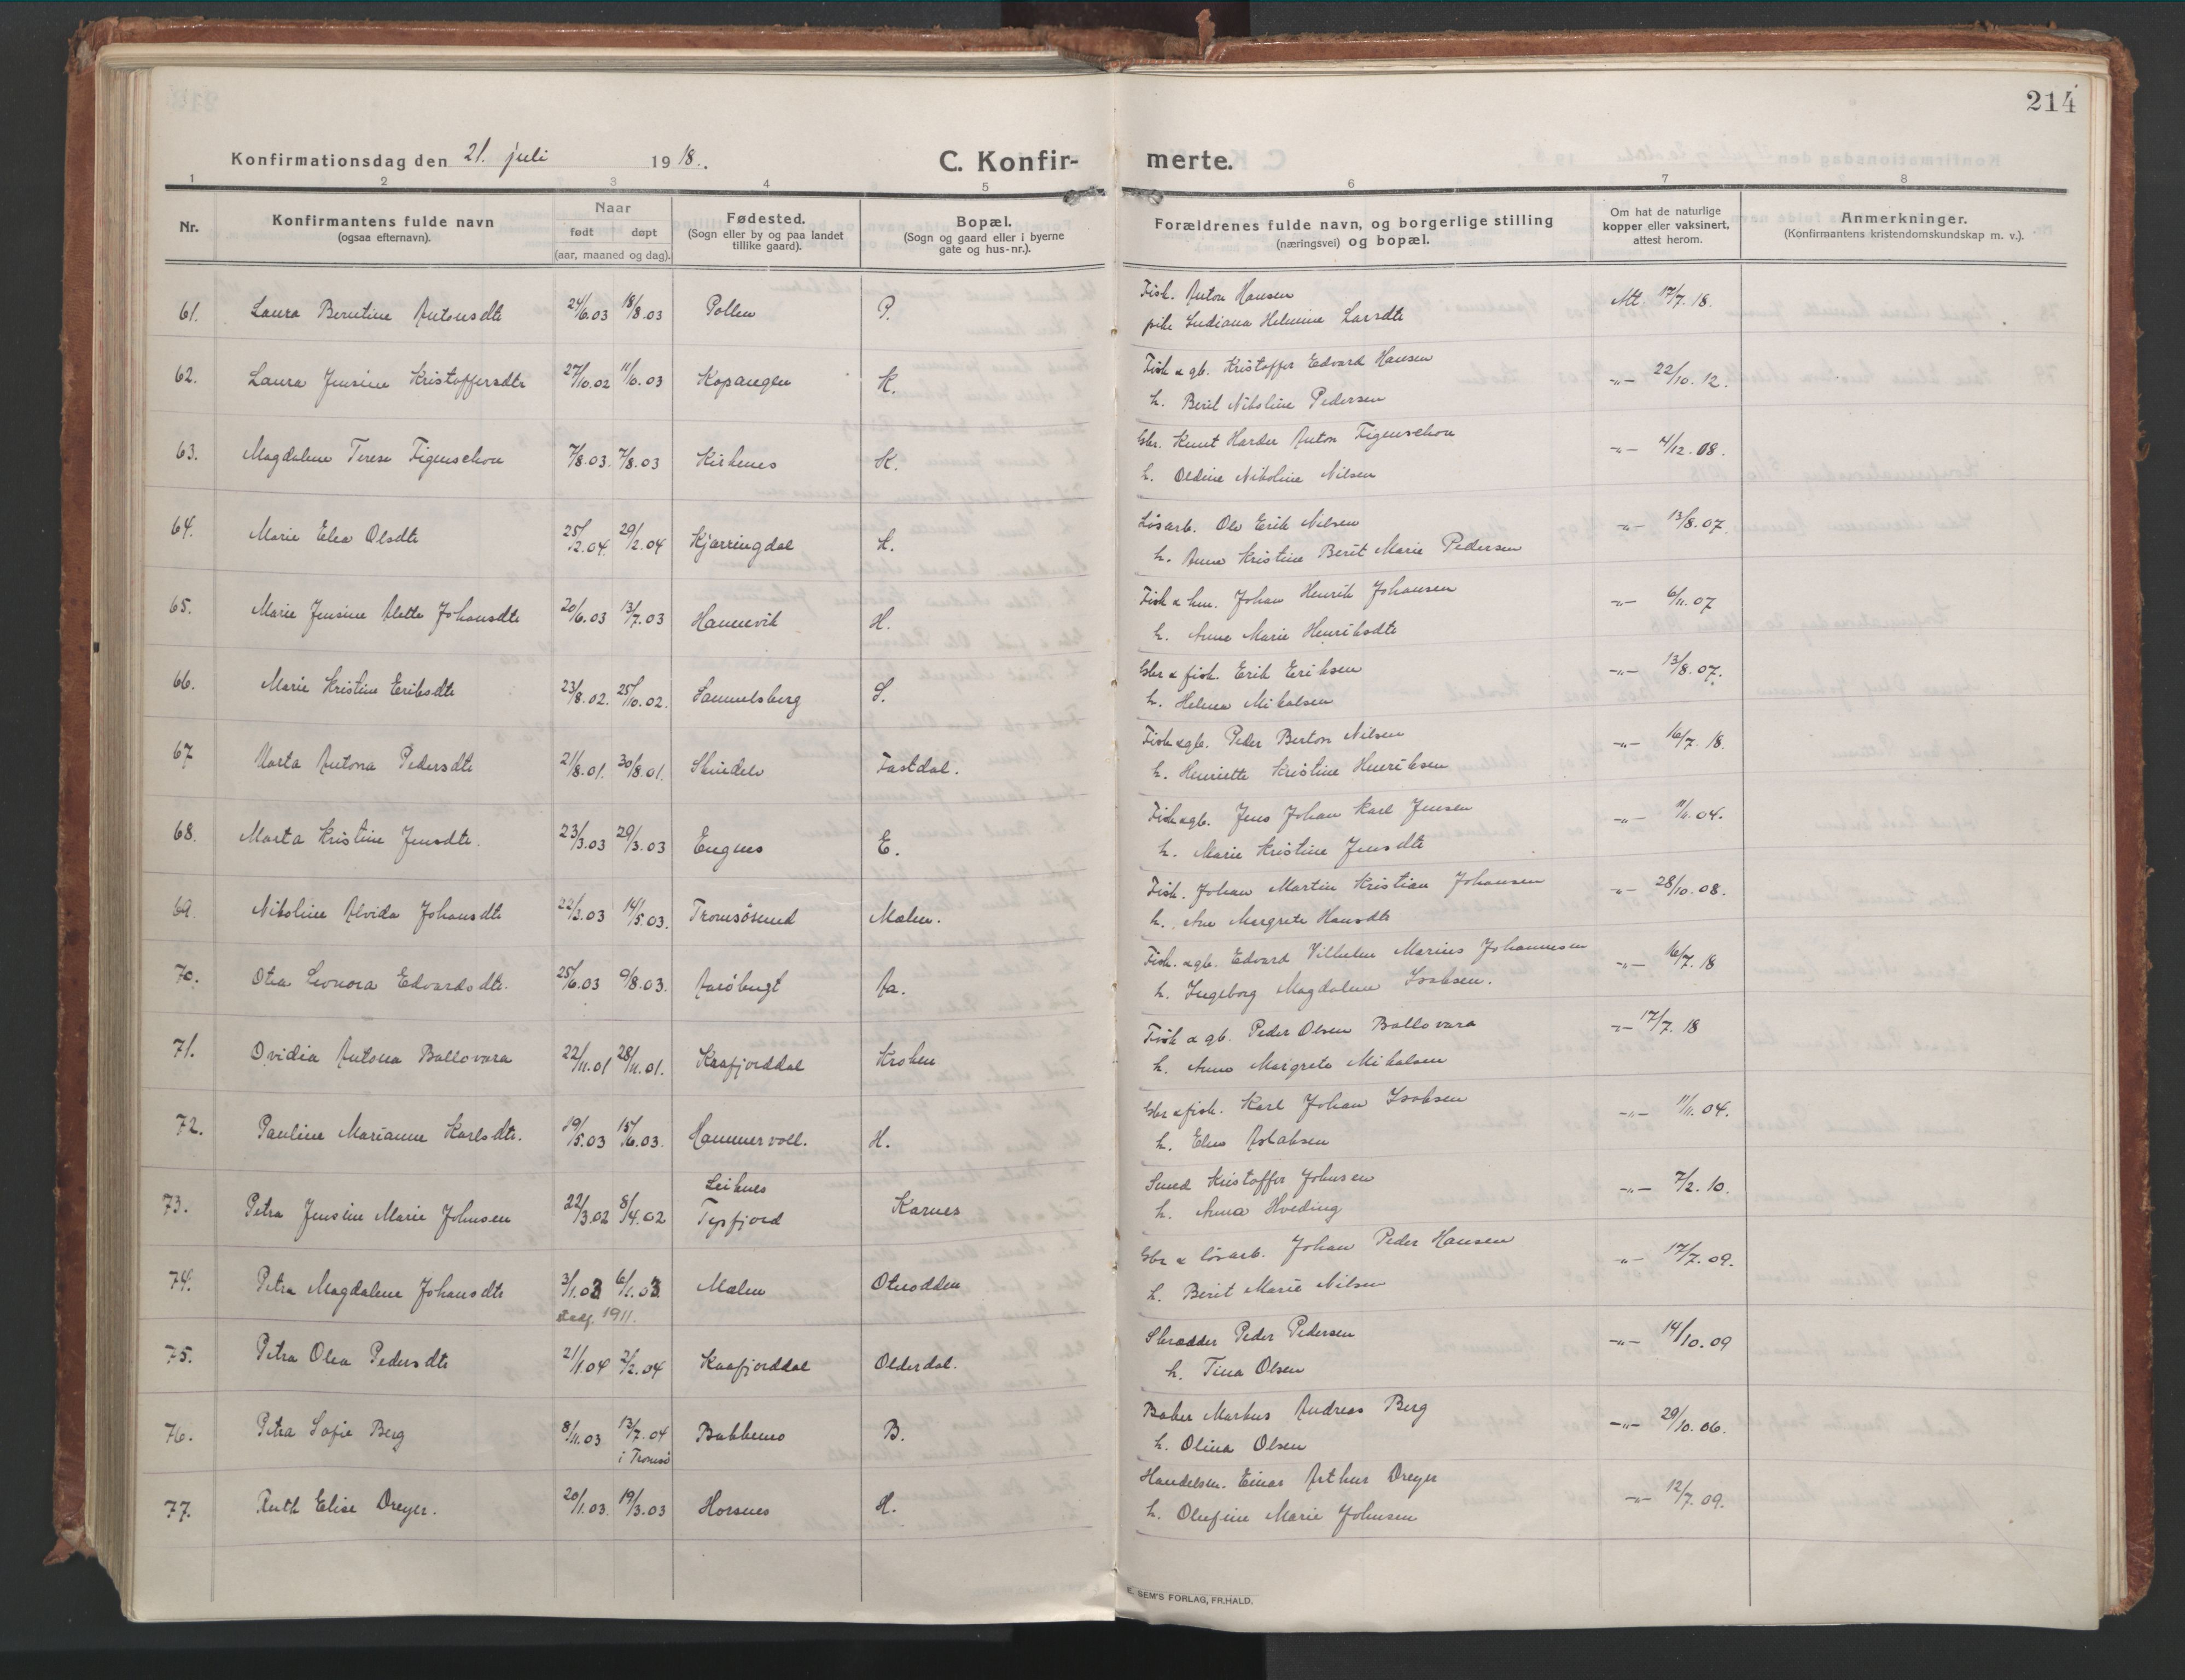 214
Konfirmationsdag den 21. juli 1918.
C. Konfir- merte.
1 2 3 4 5 6 7 8
Nr.
Konfirmantens fulde navn
(ogsaa efternavn).
Naar
født døpt
(aar, maaned og dag).
Fødested.
(Sogn eller by og paa landet
tillike gaard).
Bopæl.
(Sogn og gaard eller i byerne
gate og hus-nr.).
Forældrenes fulde navn, og borgerlige stilling
(næringsvei) og bopæl.
Om hat de naturlige
kopper eller vaksinert,
attest herom.
Anmerkninger.
(Konfirmantens kristendomskundskap m. v.).
61. Laura Berntine Antonsdtr 24/6.03 18/8.03 Pollen P. Fisk. Anton Hansen Att. 17/7.18.
pike Indiana Helmine Larsdtr
62. Laura Jensine Kristoffersdtr 27/10.02 11/6.03 Kopangen K. Fisk & gb. Kristoffer Edvard Hansen -"- 22/10.12.
h. Beril Nikoline Pedersen
63. Magdalene Terese Figenschou 7/8.03. 7/8.03 Kirkenes K. Gbr. Knut Harder Anton Figenschou -"- 4/12.08.
h. Oldine Nikoline Nilsen
64. Marie Elea Olsdtr 25/2.04. 29/2.04 Kjærringdal K. Løsarb. Ole Erik Nilsen -"- 13/8.07.
h. Anna Kristine Berit Marie Pedersen
65. Marie Jensine Alette Johansdtr 20/6.03 13/7.03 Hannevik H. Fisk & hm. Johan Henrik Johansen -"- 6/11.07
h. Anne Marie Henriksdtr
66. Marie Kristine Eriksdtr 23/8.02. 25/10.02. Samuelsberg S. Gbr & fisk. Erik Eriksen -"- 13/8.07.
h. Helena Mikalsen
67 Marta Antona Pedersdtr 21/8.01. 30/8.01. Skindelv Fastdal. Fisk & gb. Peder Berton Nilsen -"- 16/7.18.
h. Henriette Kristine Henriksen
68. Marta Kristine Jensdtr. 23/3.03 29/3.03 Engnes E. Fisk & gb. Jens Johan Karl Jensen -"- 11/11.04.
h. Marie Kristine Jensdtr
69. Nikoline Alvida Johansdtr 22/3.03 14/5.03. Tromsøsund Mælen. Fisk. Johan Martin Kristian Johansen -"- 28/10.08.
h. Ane Margrete Hansdtr
70. Otea Leonora Edvardsdtr. 25/6.03 9/8.03. Aarøbugt Aa. Fisk. & gb. Edvard Vilhelm Marius Johannesen -"- 16/7.18
h. Ingeborg Magdalene Isaksen.
71. Ovidia Antona Ballovara 22/11.01 28/11.01. Kaafjorddal Kroken Fisk & gb. Peder Olsen Ballovara -"- 17/7.18
h. Anne Margrete Mikalsen
72. Pauline Marianne Karlsdtr. 19/5.03 15/6.03. Hammervoll. H. Gbr & fisk. Karl Johan Isaksen -"- 11/11.04.
h. Elen Aslaksen
73. Petra Jensine Marie Johnsen 22/3.02 8/4.02 Leiknes Tysfjord Karnes Smed Kristoffer Johnsen -"- 7/2.10.
h. Anna Hveding
74. Petra Magdalene Johansdtr 3/1.03 6/1.03 Mælen Oterodden Gbr & løsarb. Johan Peder Hansen -"- 17/7.09.
1911. h. Berit Marie Nilsen
75. Petra Olea Pedersdtr 21/1.04 2/2.04 Kaafjorddal Olderdal. Skrædder Peder Pedersen -"- 14/10.09
h. Tina Olsen
76. Petra Sofie Berg 8/11.03 13/7.04 Bakkemo B. Baker Markus Andreas Berg -"- 29/10.06.
i Tromsø h. Olina Olsen
77. Ruth Elise Dreyer. 20/1.03. 19/3.03 Horsnes H. Handelsm. Einar Arthur Dreyer -"- 12/7.09.
h. Olufine Marie Johnsen
E. SEM'S FORLAG, FR.HALD.